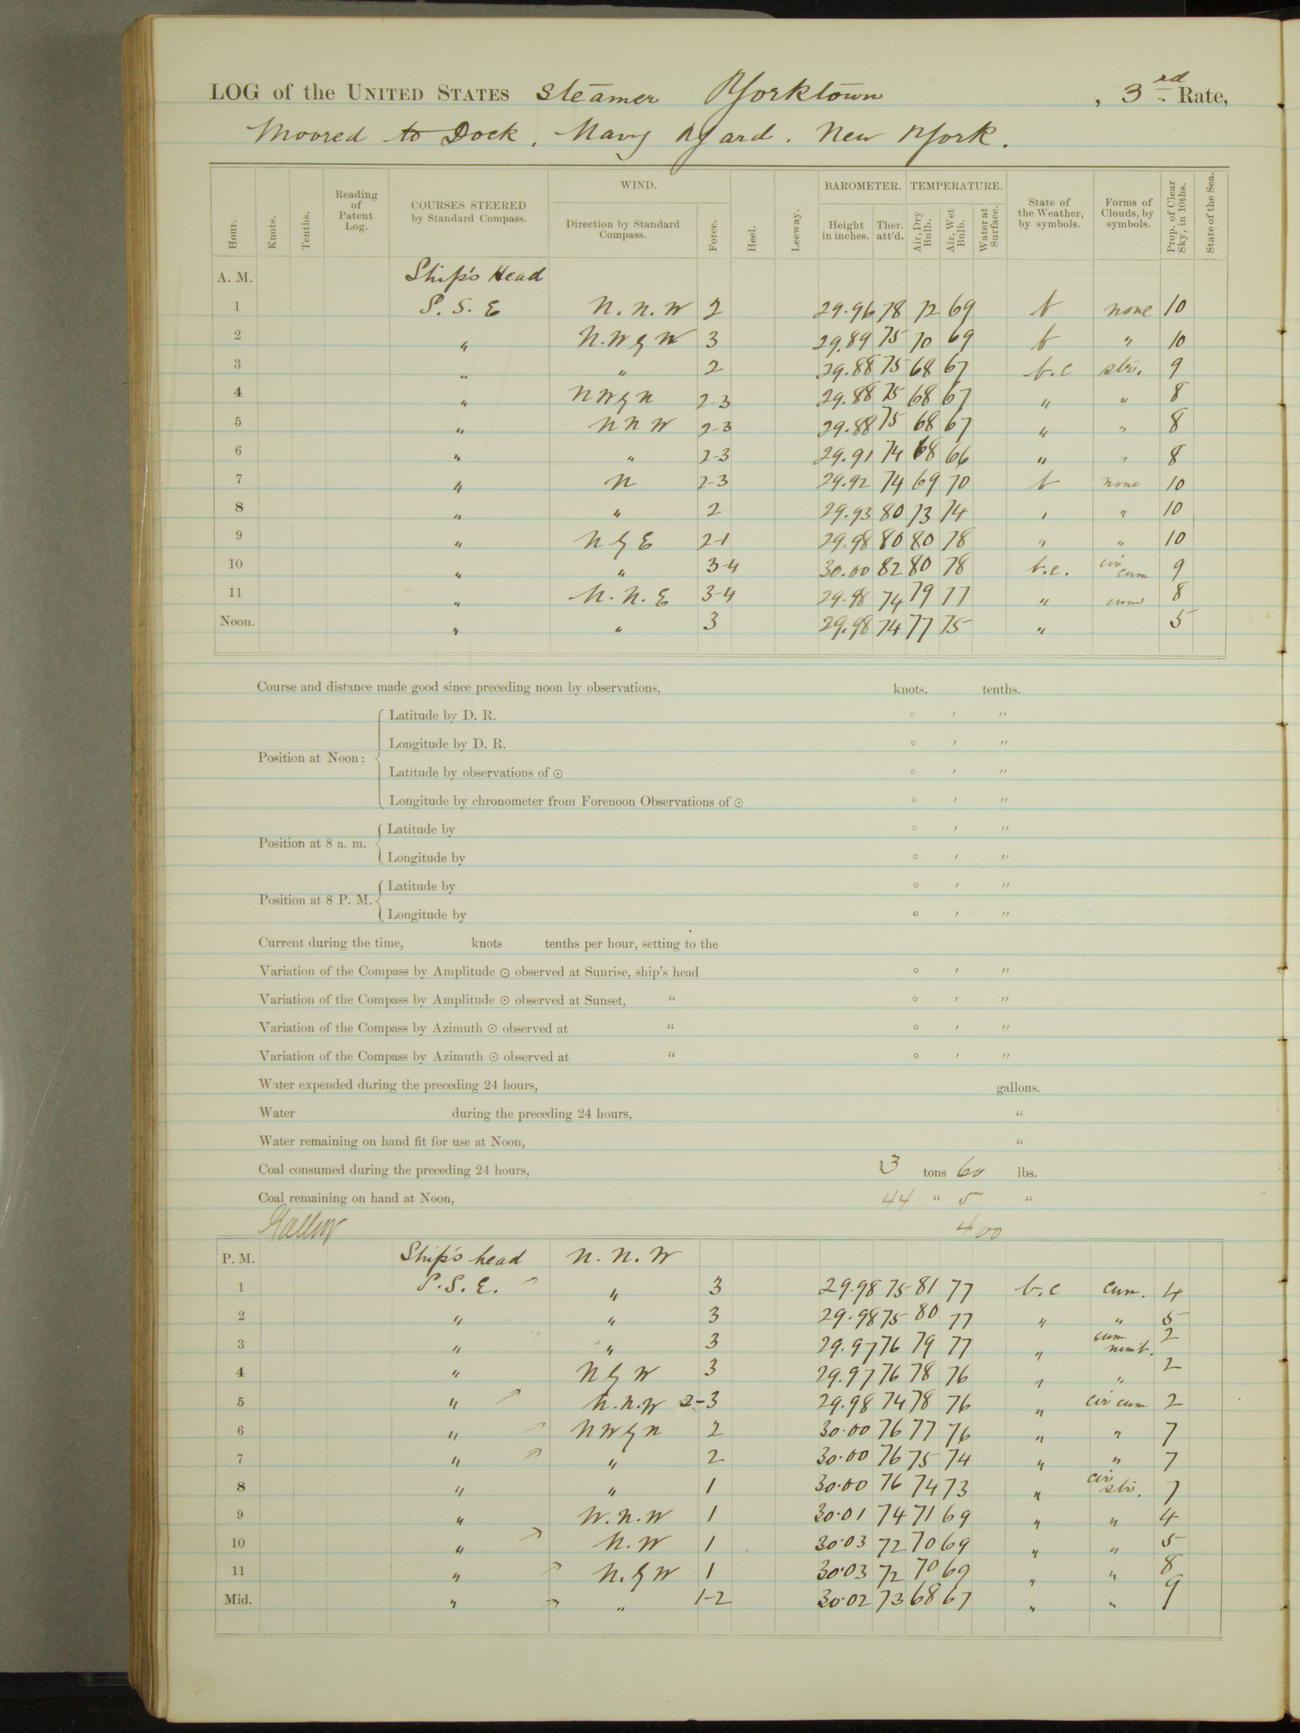 LOG of the UNITED STATES Steamer Yorktown, 3rd Rate,
Moored to Dock, Navy Yard. New York.
Hour. Knots. Tenths. Reading of Patent Log. COURSES STEERED by Standard Compass. WIND. Direction by Standard Compass. Force. Heel. Leeway. BAROMETER. Height in inches. Ther. att'd. TEMPERATURE. Air, Dry Bulb. Air, Wet Bulb. Water at Surface. State of the Weather, by symbols. Forms of Clouds, by symbols. Prop. of Clear Sky, in 10ths. State of the Sea.
A. M. Ship's Head
1 S. S. E N. N. W 2 29.96 78 72 69 b none 10
2 " N. W by W 3 29.89 75 70 69 b " 10
3 " " 2 29.88 75 68 67 b.c str. 9
4 " N W by N 2-3 29.88 75 68 67 " " 8
5 " N N W 2-3 29.88 75 68 67 " " 8
6 " " 2-3 29.91 74 68 66 " " 8
7 " N 2-3 29.92 74 69 70 b none 10
8 " " 2 29.93 80 73 74 " " 10
9 " N by E 2-1 29.98 80 80 78 " " 10
10 " " 3-4 30.00 82 80 78 b.c. cir cum 9
11 " N. N. E 3-4 29.98 74 79 77 " cum 8
Noon. " " 3 29.98 74 77 75 " 5
Course and distance made good since preceding noon by observations, knots. tenths.
Position at Noon: Latitude by D. R. ° ′ ″
Longitude by D. R. ° ′ ″
Latitude by observations of ☉ ° ′ ″
Longitude by chronometer from Forenoon Observations of ☉ ° ′ ″
Position at 8 a. m. Latitude by ° ′ ″
Longitude by ° ′ ″
Position at 8 P. M. Latitude by ° ′ ″
Longitude by ° ′ ″
Current during the time, knots tenths per hour, setting to the
Variation of the Compass by Amplitude ☉ observed at Sunrise, ship's head ° ′ ″
Variation of the Compass by Amplitude ☉ observed at Sunset, " ° ′ ″
Variation of the Compass by Azimuth ☉ observed at " ° ′ ″
Variation of the Compass by Azimuth ☉ observed at " ° ′ ″
Water expended during the preceding 24 hours, gallons.
Water during the preceding 24 hours, "
Water remaining on hand fit for use at Noon, "
Coal consumed during the preceding 24 hours, 3 tons 60 lbs.
Coal remaining on hand at Noon, 44 " 5 "
400
P. M. Ship's head N. N. W
1 S. S. E. " 3 29.98 75 81 77 b.c cum. 4
2 " " 3 29.98 75 80 77 " " 5
3 " " 3 29.97 76 79 77 " cum nimb. 2
4 " N by W 3 29.97 76 78 76 " " 2
5 " N.N.W 2-3 29.98 74 78 76 " cir cum 2
6 " N W by N 2 30.00 76 77 76 " " 7
7 " " 2 30.00 76 75 74 " " 7
8 " " 1 30.00 76 74 73 " cir str. 7
9 " W. N. W 1 30.01 74 71 69 " " 4
10 " N. W 1 30.03 72 70 69 " " 5
11 " N. by W 1 30.03 72 70 69 " " 8
Mid. " " 1-2 30.02 73 68 67 " " 9